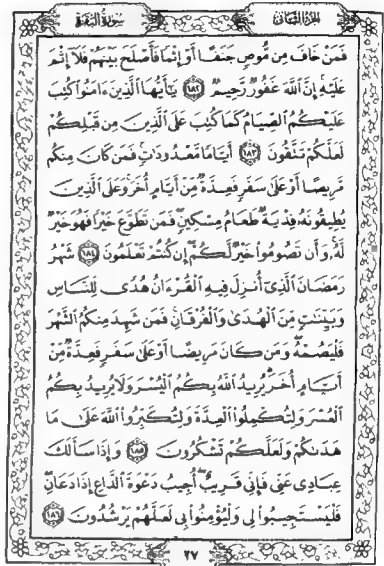 الجزء الثاني
سورة البقرة
فَمَنْ خَافَ مِن مُّوصٍ جَنَفًا أَوْ إِثْمًا فَأَصْلَحَ بَيْنَهُمْ فَلَآ إِثْمَ
عَلَيْهِ إِنَّ ٱللَّهَ غَفُورٌ رَّحِيمٌ ١٨٢ يَـٰٓأَيُّهَا ٱلَّذِينَ ءَامَنُوا۟ كُتِبَ
عَلَيْكُمُ ٱلصِّيَامُ كَمَا كُتِبَ عَلَى ٱلَّذِينَ مِن قَبْلِكُمْ
لَعَلَّكُمْ تَتَّقُونَ ١٨٣ أَيَّامًا مَّعْدُودَٰتٍ ۚ فَمَن كَانَ مِنكُم
مَّرِيضًا أَوْ عَلَىٰ سَفَرٍ فَعِدَّةٌ مِّنْ أَيَّامٍ أُخَرَ ۚ وَعَلَى ٱلَّذِينَ
يُطِيقُونَهُۥ فِدْيَةٌ طَعَامُ مِسْكِينٍ ۖ فَمَن تَطَوَّعَ خَيْرًا فَهُوَ خَيْرٌ
لَّهُۥ ۚ وَأَن تَصُومُوا۟ خَيْرٌ لَّكُمْ ۖ إِن كُنتُمْ تَعْلَمُونَ ١٨٤ شَهْرُ
رَمَضَانَ ٱلَّذِىٓ أُنزِلَ فِيهِ ٱلْقُرْءَانُ هُدًى لِّلنَّاسِ
وَبَيِّنَـٰتٍ مِّنَ ٱلْهُدَىٰ وَٱلْفُرْقَانِ ۚ فَمَن شَهِدَ مِنكُمُ ٱلشَّهْرَ
فَلْيَصُمْهُ ۖ وَمَن كَانَ مَرِيضًا أَوْ عَلَىٰ سَفَرٍ فَعِدَّةٌ مِّنْ
أَيَّامٍ أُخَرَ ۗ يُرِيدُ ٱللَّهُ بِكُمُ ٱلْيُسْرَ وَلَا يُرِيدُ بِكُمُ
ٱلْعُسْرَ وَلِتُكْمِلُوا۟ ٱلْعِدَّةَ وَلِتُكَبِّرُوا۟ ٱللَّهَ عَلَىٰ مَا
هَدَىٰكُمْ وَلَعَلَّكُمْ تَشْكُرُونَ ١٨٥ وَإِذَا سَأَلَكَ
عِبَادِى عَنِّى فَإِنِّى قَرِيبٌ ۖ أُجِيبُ دَعْوَةَ ٱلدَّاعِ إِذَا دَعَانِ ۖ
فَلْيَسْتَجِيبُوا۟ لِى وَلْيُؤْمِنُوا۟ بِى لَعَلَّهُمْ يَرْشُدُونَ ١٨٦
٢٧